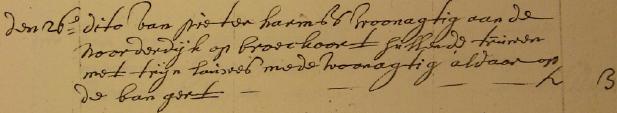 den 26e dito van pieter harmss woonagtig aan de
Noorderdijk op broeckoort sullende trúwen
met trijn louwes mede woonagtig aldaar op
de bangert — — — — — h B